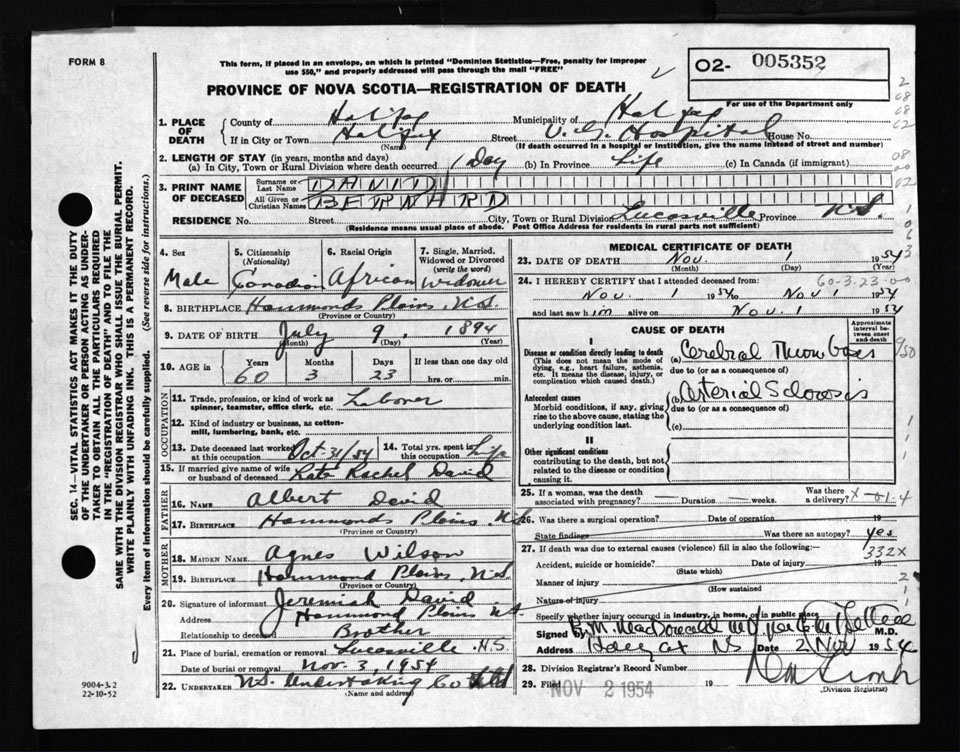 FORM 8
This form, if placed in an envelope, on which is printed "Dominion Statistics—Free, penalty for improper
use $50," and properly addressed will pass through the mail "FREE"
O2- 005352
PROVINCE OF NOVA SCOTIA—REGISTRATION OF DEATH
For use of the Department only
1. PLACE OF DEATH
County of Halifax Municipality of Halifax
If in City or Town Halifax Street V. G. Hospital House No.
(Name) (If death occurred in a hospital or institution, give the name instead of street and number)
2. LENGTH OF STAY (in years, months and days)
(a) In City, Town or Rural Division where death occurred 1 Day (b) In Province Life (c) In Canada (if immigrant)
3. PRINT NAME OF DECEASED
Surname or Last Name DAVID
All Given or Christian Names BERNARD
RESIDENCE No. Street City, Town or Rural Division Lucasville Province N.S.
(Residence means usual place of abode. Post Office Address for residents in rural parts not sufficient)
4. Sex Male
5. Citizenship (Nationality) Canadian
6. Racial Origin African
7. Single, Married, Widowed or Divorced (write the word) Widower
8. BIRTHPLACE Hammonds Plains, N.S.
(Province or Country)
9. DATE OF BIRTH July 9, 1894
(Month) (Day) (Year)
10. AGE in Years 60 Months 3 Days 23 If less than one day old
hrs. or min.
OCCUPATION
11. Trade, profession, or kind of work as
spinner, teamster, office clerk, etc. Laborer
12. Kind of industry or business, as cotton-
mill, lumbering, bank, etc.
13. Date deceased last worked at this occupation Oct-31/54 14. Total yrs. spent in this occupation Life
15. If married give name of wife
or husband of deceased Kate Rachel David
FATHER
16. NAME Albert David
17. BIRTHPLACE Hammonds Plains, N.S.
(Province or Country)
MOTHER
18. MAIDEN NAME Agnes Wilson
19. BIRTHPLACE Hammond Plains, N.S.
(Province or Country)
20. Signature of informant Jeremiah David
Address Hammond Plains NS
Relationship to deceased Brother
21. Place of burial, cremation or removal Lucasville N.S.
Date of burial or removal Nov. 3, 1954
22. UNDERTAKER N.S. Undertaking Co Ltd
(Name and address)
MEDICAL CERTIFICATE OF DEATH
23. DATE OF DEATH Nov. 1 1954
(Month) (Day) (Year)
24. I HEREBY CERTIFY that I attended deceased from:
60-3-23-00
Nov. 1 1954 to Nov 1 1954
and last saw him alive on Nov. 1 1954
CAUSE OF DEATH
Approximate interval between onset and death
I
Disease or condition directly leading to death
(This does not mean the mode of
dying, e.g., heart failure, asthenia,
etc. It means the disease, injury, or
complication which caused death.)
(a) Cerebral Thrombosis
due to (or as a consequence of)
Antecedent causes
Morbid conditions, if any, giving
rise to the above cause, stating the
underlying condition last.
(b) Arterial Sclerosis
due to (or as a consequence of)
(c)
II
Other significant conditions
contributing to the death, but not
related to the disease or condition
causing it.
25. If a woman, was the death
associated with pregnancy? Duration weeks. Was there a delivery?
26. Was there a surgical operation? Date of operation 19
State findings Was there an autopsy? yes
27. If death was due to external causes (violence) fill in also the following:—
332X
Accident, suicide or homicide? Date of injury 19
(State which)
Manner of injury
(How sustained
Nature of injury
Specify whether injury occurred in industry, in home, or in public place
Signed M. MacDonald M.D.
Address Halifax NS Date 2 Nov 1954
28. Division Registrar's Record Number
29. Filed NOV 2 1954 19
(Division Registrar)
SEC. 14—VITAL STATISTICS ACT MAKES IT THE DUTY
OF THE UNDERTAKER OR PERSON ACTING AS UNDER-
TAKER TO OBTAIN ALL THE PARTICULARS REQUIRED
IN THE "REGISTRATION OF DEATH" AND TO FILE THE
SAME WITH THE DIVISION REGISTRAR WHO SHALL ISSUE THE BURIAL PERMIT.
WRITE PLAINLY WITH UNFADING INK. THIS IS A PERMANENT RECORD.
Every item of information should be carefully supplied. (See reverse side for instructions.)
9004-3.2
22-10-52